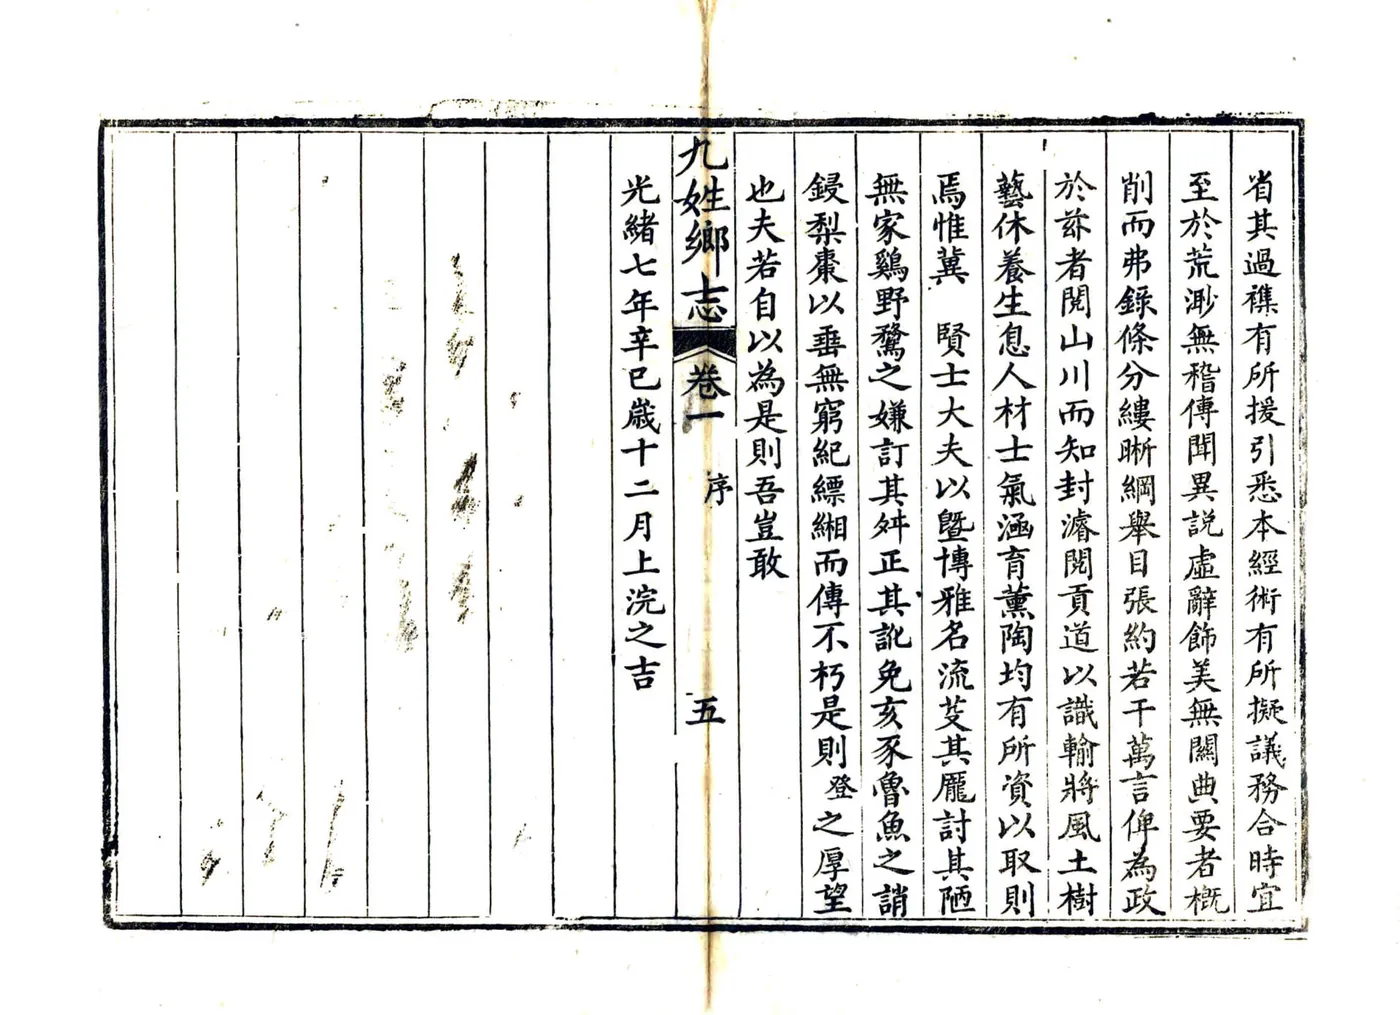 省其過襍有所援引悉本經術有所擬議務合時宜
至於荒渺無稽傳聞異説虛辭飾美無關典要者概
削而弗錄條分縷晰綱舉目張約若干萬言俾為政
於茲者閱山川而知封濬閱貢道以識輸將風土樹
藝休養生息人材士氣涵育薰陶均有所資以取則
焉惟冀　賢士大夫以曁博雅名流芟其厖討其陋
無家鷄野鶩之嫌訂其舛正其訛免亥豕魯魚之誚
鋟梨棗以垂無窮紀縹緗而傳不朽是則登之厚望
也夫若自以為是則吾豈敢
九姓鄉志　卷一　序　五
光緒七年辛巳歲十二月上浣之吉